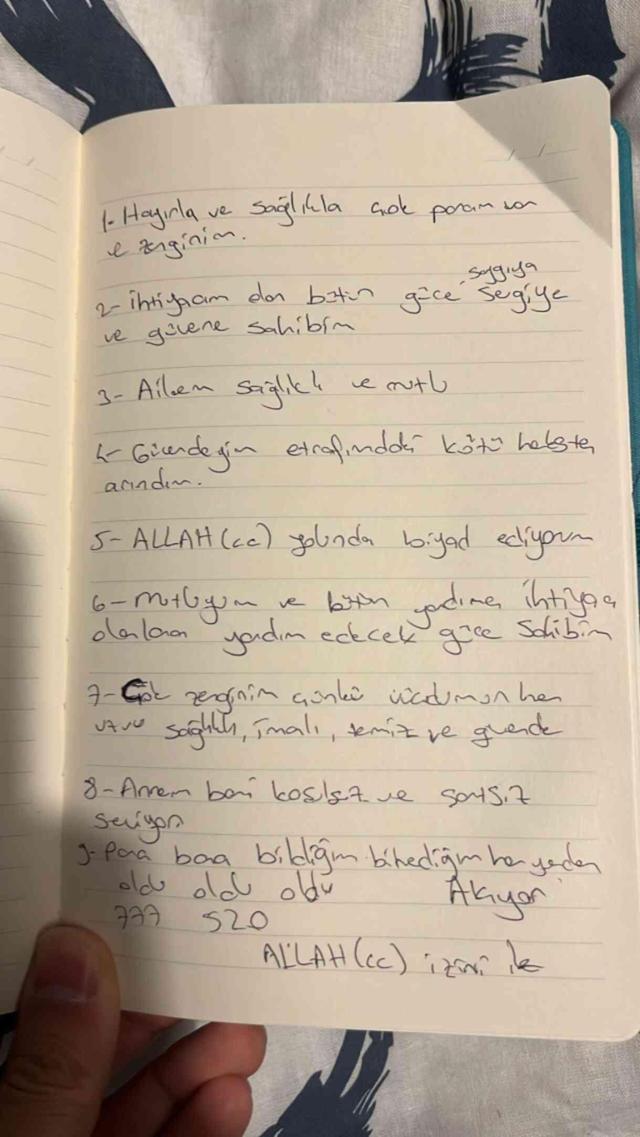 1- Hayırla ve sağlıkla çok param var
ve zenginim.
saygıya
2- ihtiyacım olan bütün güce sevgiye
ve güvene sahibim
3- Ailem sağlıklı ve mutlu
4- Güvendeyim etrafımdaki kötü herkesten
arındım.
5- ALLAH(cc) yolunda biyad ediyorum
6- mutluyum ve bütün yardıma ihtiyacı
olanlara yardım edecek güce sahibim
7- Çok zenginim çünkü vücudumun her
uzvu sağlıklı, imalı, temiz ve güvende
8- Annem beni koşulsuz ve şartsız
seviyor
9- Para bana bildiğim bilmediğim her yerden
oldu oldu oldu Akıyor
777 520
ALLAH(cc) izini ile